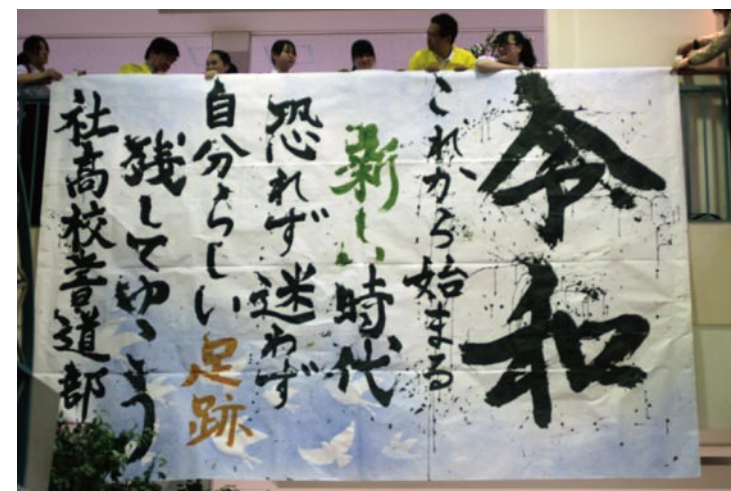 令和
これから始まる
新しい時代
恐れず迷わず
自分らしい足跡
残してゆこう
社高校書道部